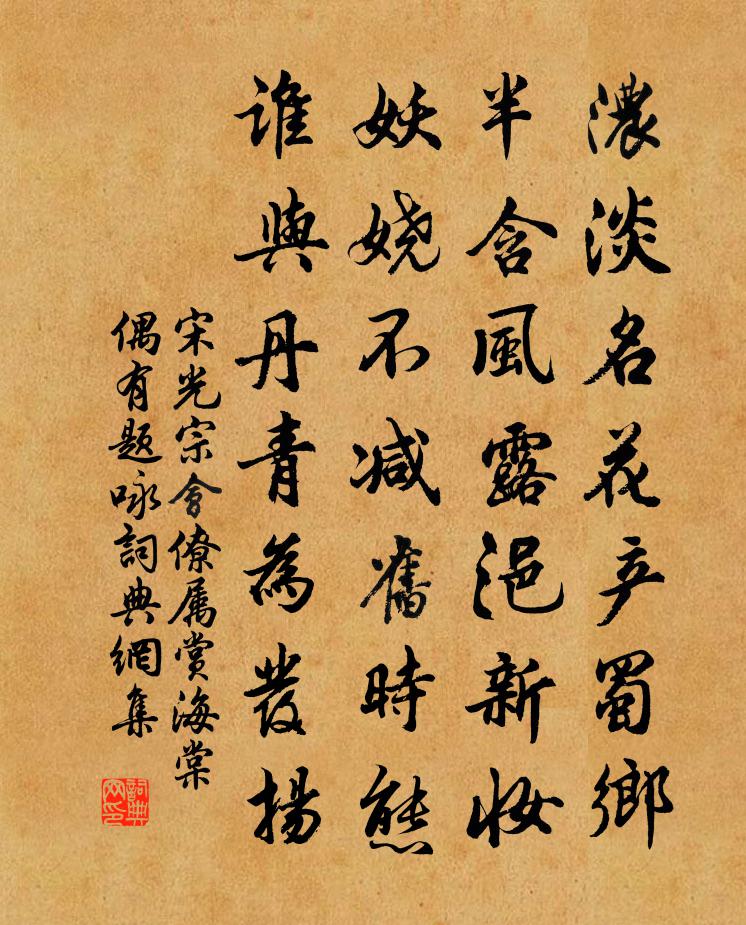 濃淡名花产蜀鄉
半含風露浥新妆
妖娆不减舊時態
谁與丹青為发揚
宋光宗會僚属賞海棠
偶有题咏詞典網集
詞典
网印